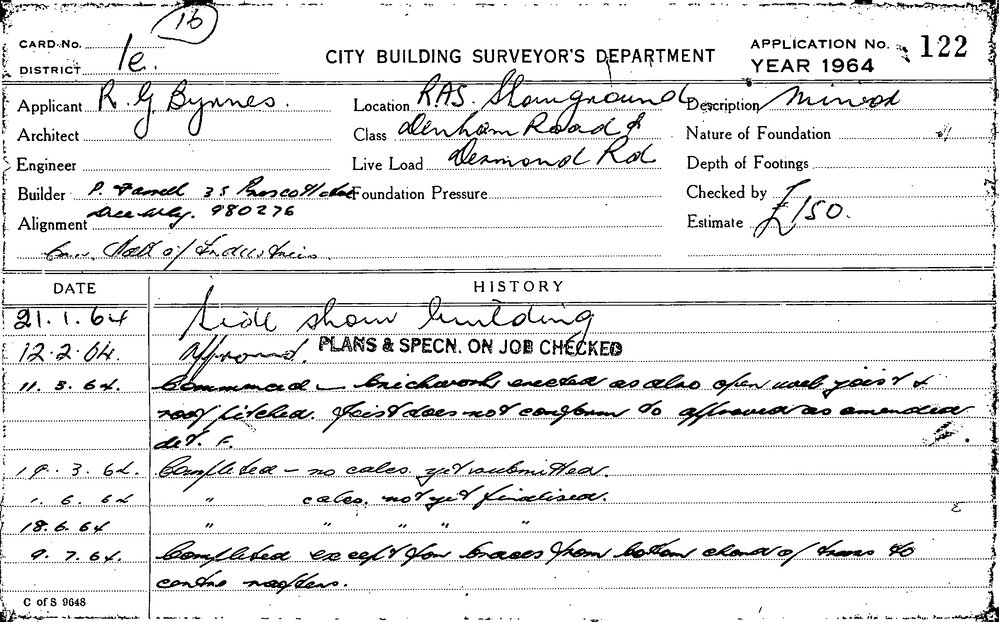 16
CARD No.
DISTRICT 1e.
CITY BUILDING SURVEYOR'S DEPARTMENT
APPLICATION No. 122
YEAR 1964
Applicant R. G Byrnes.
Location RAS. Showground
Description Minor
Architect
Class Denham Road &
Nature of Foundation
Engineer
Live Load Desmond Rd
Depth of Footings
Builder P. Farrell 35
Foundation Pressure
Checked by
Alignment 980276
Estimate £150.
Hall of Industries.
DATE HISTORY
21.1.64 Side show building
12.2.64. Approved. PLANS & SPECN. ON JOB CHECKED
11.3.64. Commenced - brickwork erected as also open web joist &
roof pitched. Joist does not conform to approved as amended
det. F.
19.3.64. Completed - no calcs. yet submitted.
1.6.64 " calcs. not yet finalised.
18.6.64 " " " " "
9.7.64. Completed except for braces from bottom chord of truss to
centre rafters.
C of S 9648